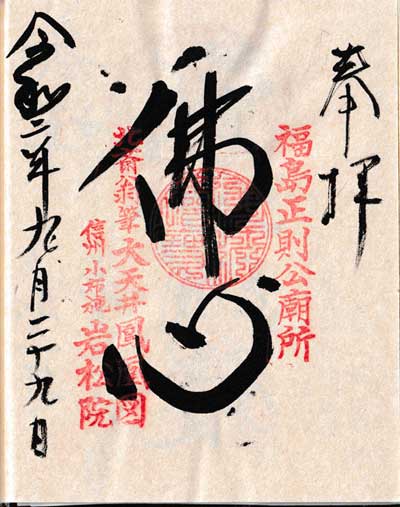 奉拝
福島正則公廟所
佛心
北斎翁筆大天井鳳凰図
信州小布施岩松院
令和二年九月二十九日